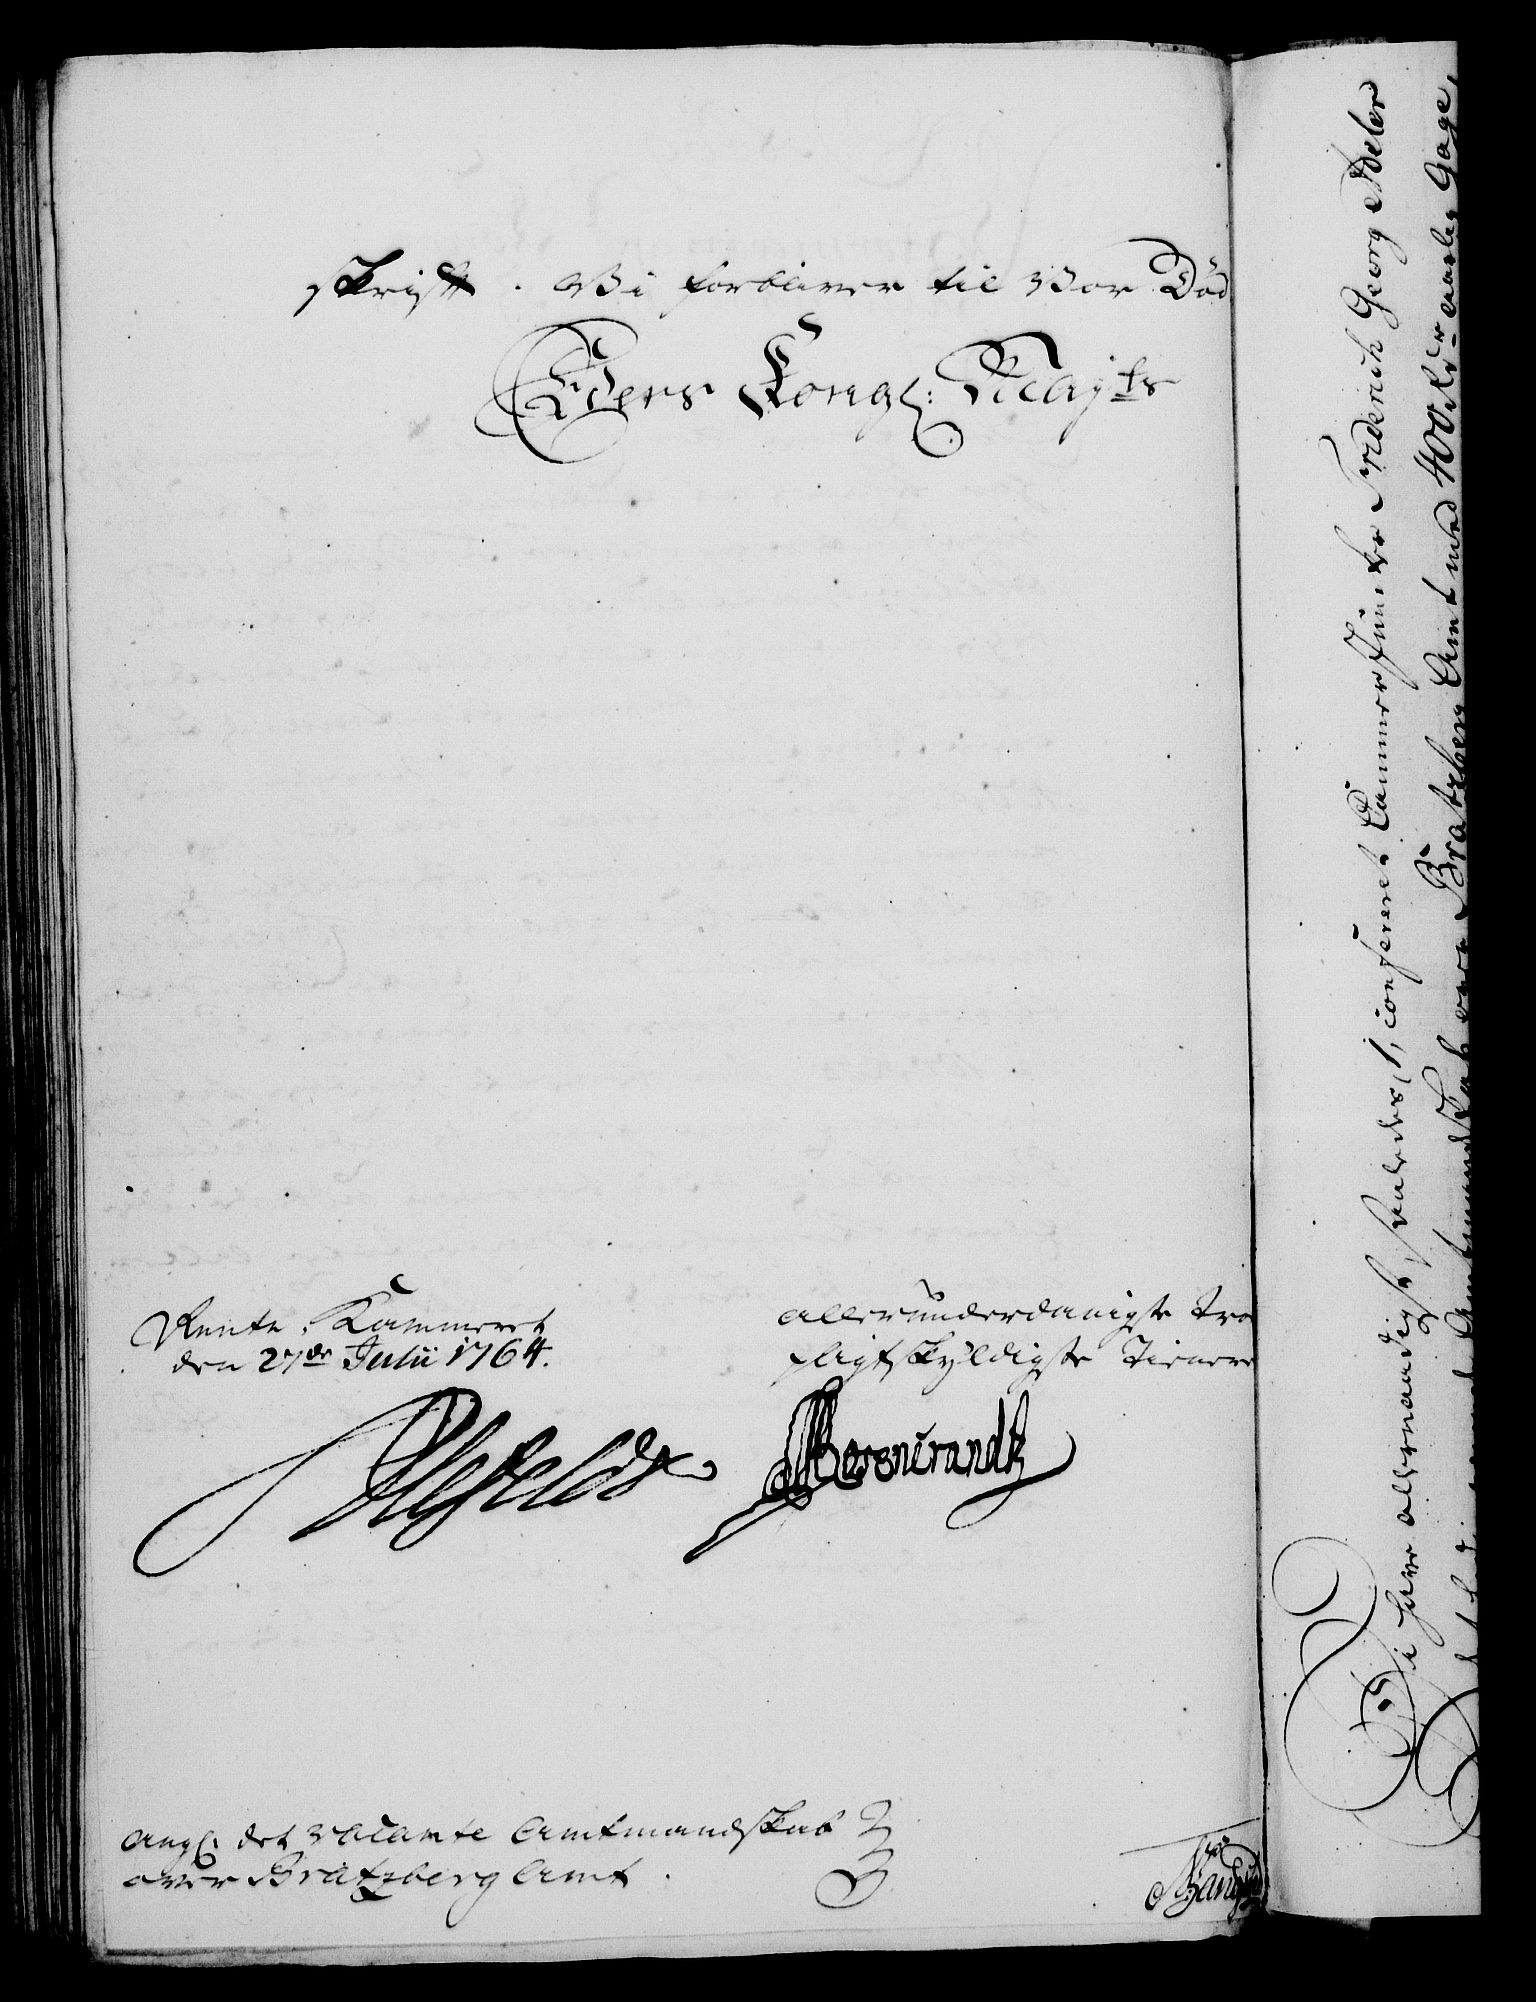 skrift. Vi forbliver til Vor Död
Eders Kongl: Mayts
Rente-Kammeret
den 27de Julii 1764.
allerunderdanigste Tro
pligtskyldigste Tienere
Ahlefeldt
Berencrandtz
angl. det vacante Amtmandskab
over Bratzberg Amt.
Vi have allernaadigst saaledes conferered Cammer Junker Friderich Georg Adeler
Amtmandskab over Bratzberg Amt med 400 Rdr aarlig Gage,